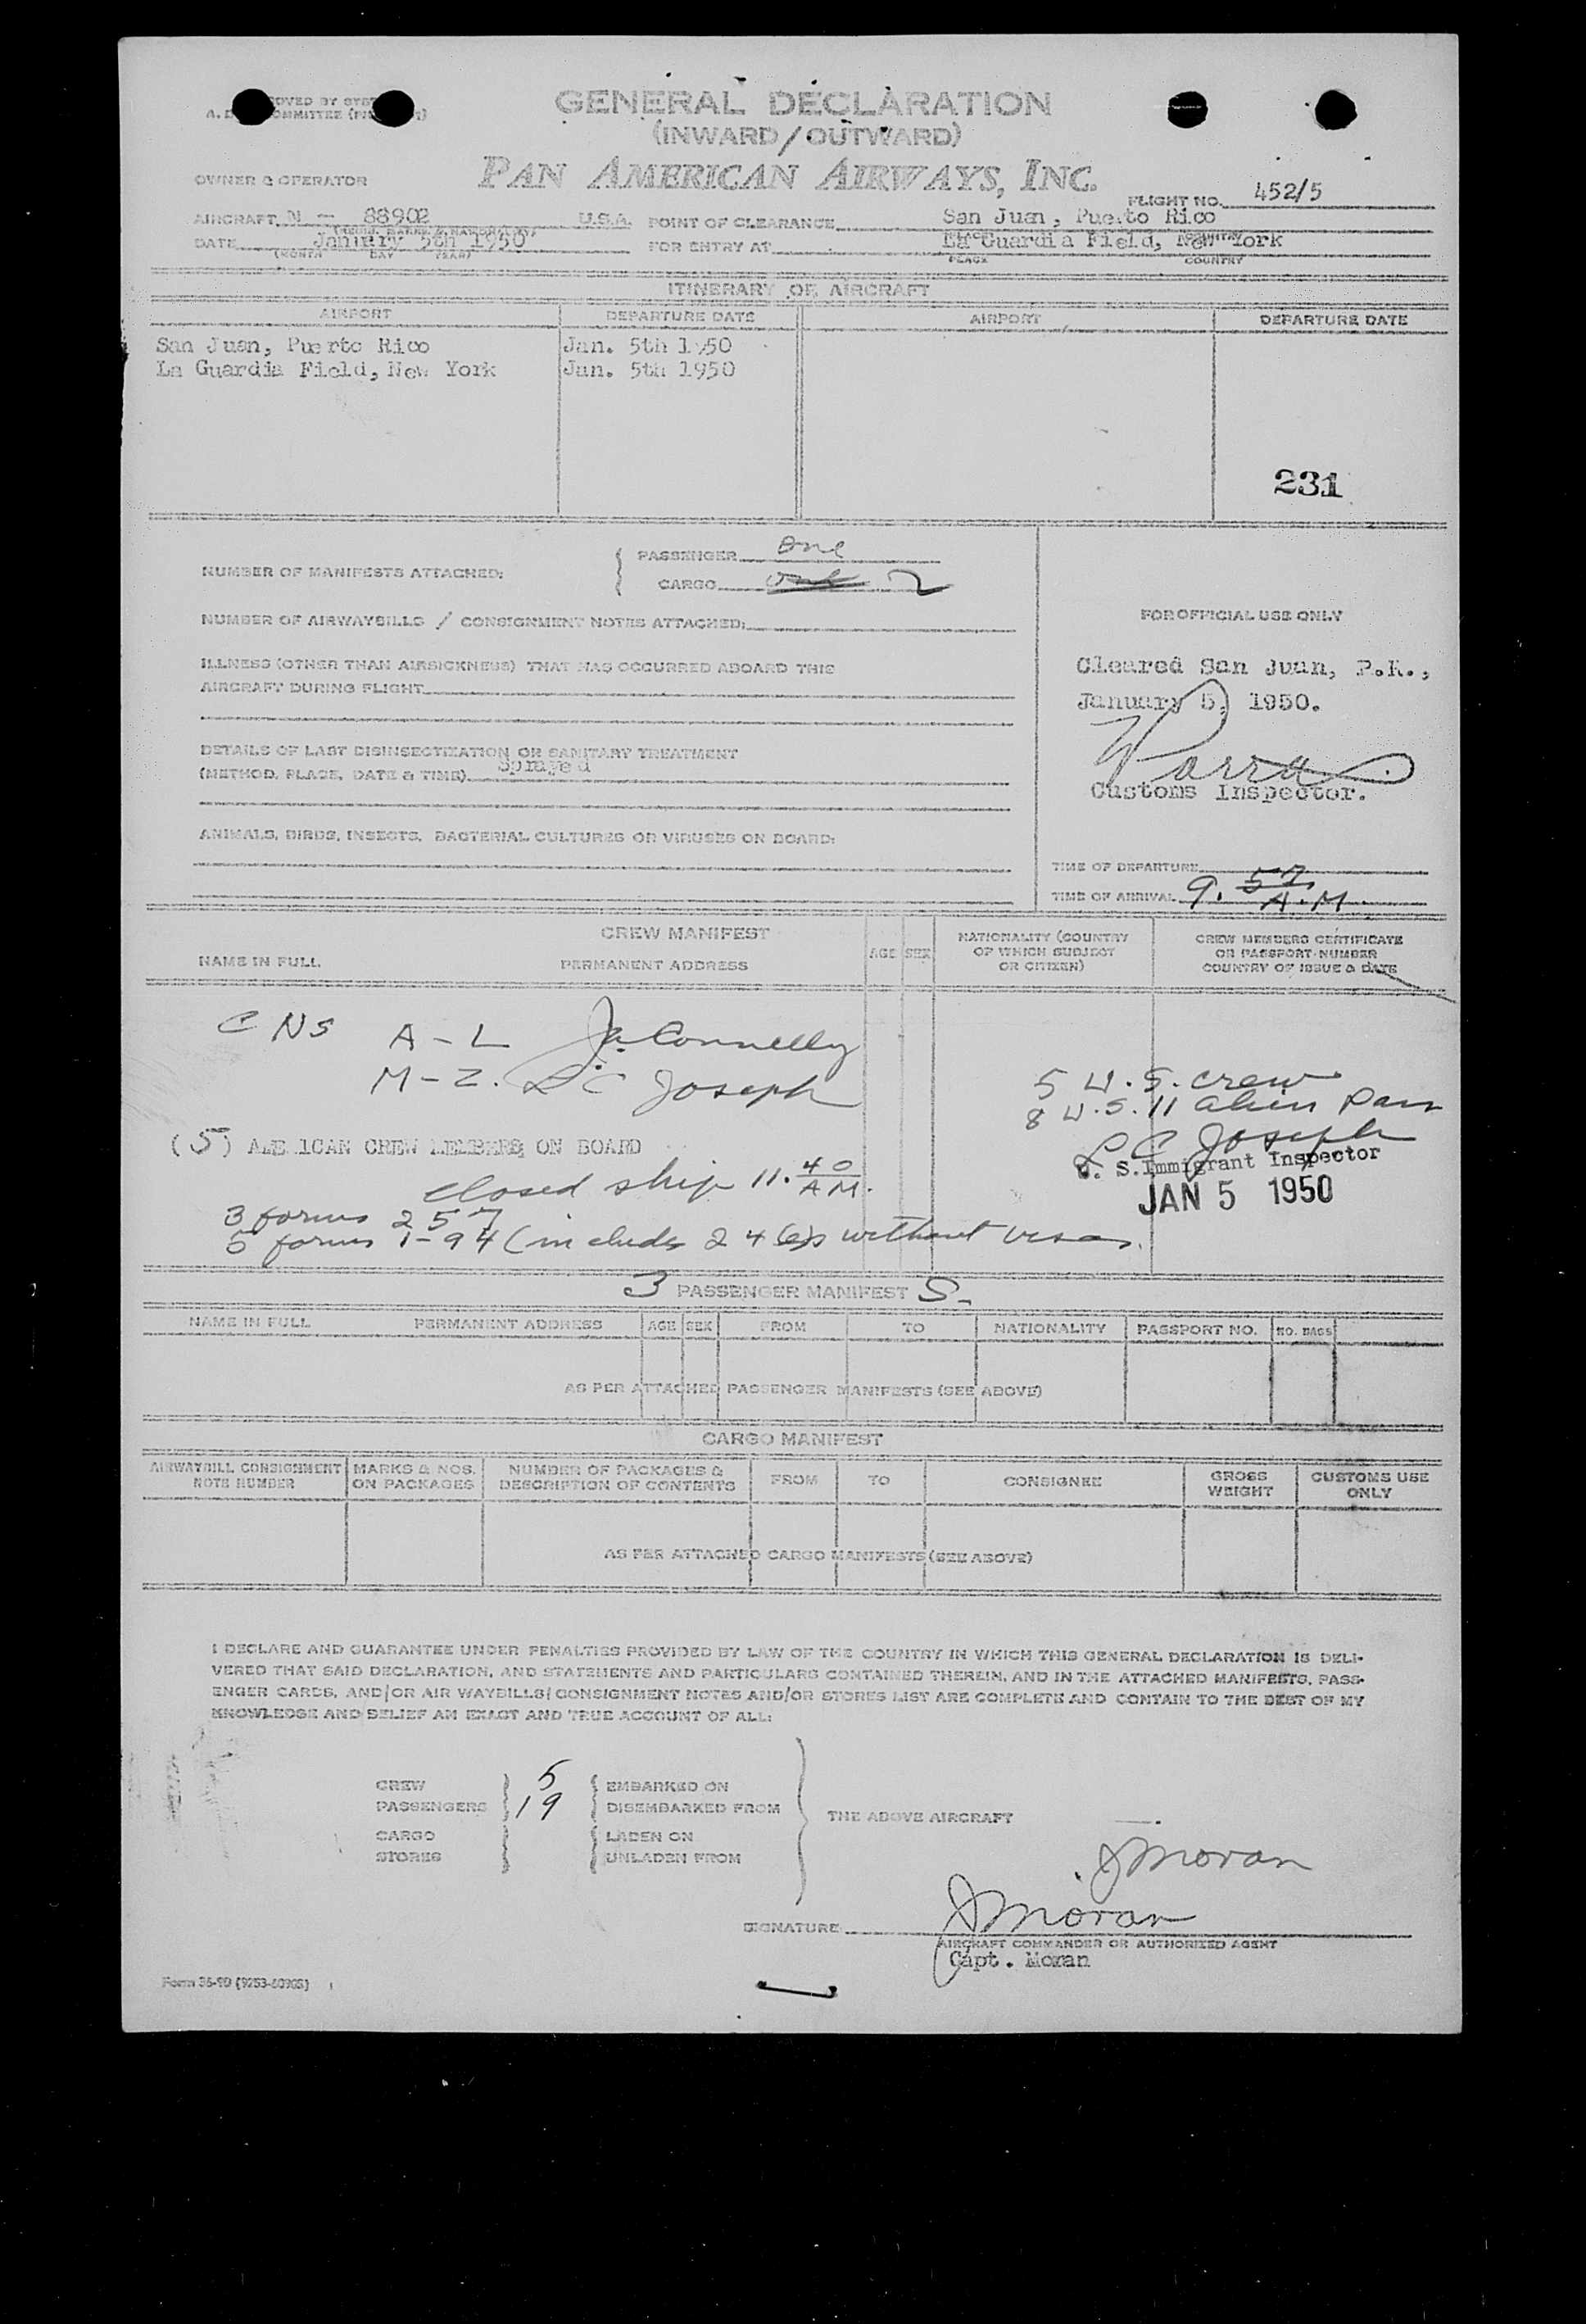 GENERAL DECLARATION
(INWARD/OUTWARD)
PAN AMERICAN AIRWAYS, INC.
OWNER & OPERATOR
FLIGHT NO. 452/5
AIRCRAFT N - 88902 U.S.A. POINT OF CLEARANCE San Juan, Puerto Rico
DATE January 5th 1950 FOR ENTRY AT La Guardia Field, New York
(MONTH DAY YEAR) PLACE COUNTRY
ITINERARY OF AIRCRAFT
AIRPORT DEPARTURE DATE AIRPORT DEPARTURE DATE
San Juan, Puerto Rico Jan. 5th 1950
La Guardia Field, New York Jan. 5th 1950
231
NUMBER OF MANIFESTS ATTACHED: PASSENGER one
CARGO one 2
NUMBER OF AIRWAYBILLS / CONSIGNMENT NOTES ATTACHED:
FOR OFFICIAL USE ONLY
ILLNESS (OTHER THAN AIRSICKNESS) THAT HAS OCCURRED ABOARD THIS
AIRCRAFT DURING FLIGHT
Cleared San Juan, P.R.,
January 5, 1950.
DETAILS OF LAST DISINSECTIZATION OR SANITARY TREATMENT
(METHOD, PLACE, DATE & TIME) Sprayed
Parra
Customs Inspector.
ANIMALS, BIRDS, INSECTS, BACTERIAL CULTURES OR VIRUSES ON BOARD:
TIME OF DEPARTURE
TIME OF ARRIVAL 9.57 A.M.
CREW MANIFEST
NAME IN FULL PERMANENT ADDRESS AGE SEX NATIONALITY (COUNTRY OF WHICH SUBJECT OR CITIZEN) CREW MEMBERS CERTIFICATE OR PASSPORT NUMBER COUNTRY OF ISSUE & DATE
CNS A - L Ja Connelly
M - Z. L C Joseph
5 U.S. crew
8 U.S. 11 alien pass
L C Joseph
U. S. Immigrant Inspector
JAN 5 1950
(5) AMERICAN CREW MEMBERS ON BOARD
closed ship 11.40 AM.
3 forms 257
5 forms I-94 (includes 2 4 (6)s without visas.
3 PASSENGER MANIFEST S-
NAME IN FULL PERMANENT ADDRESS AGE SEX FROM TO NATIONALITY PASSPORT NO. NO. BAGS
AS PER ATTACHED PASSENGER MANIFESTS (SEE ABOVE)
CARGO MANIFEST
AIRWAYBILL CONSIGNMENT NOTE NUMBER MARKS & NOS. ON PACKAGES NUMBER OF PACKAGES & DESCRIPTION OF CONTENTS FROM TO CONSIGNEE GROSS WEIGHT CUSTOMS USE ONLY
AS PER ATTACHED CARGO MANIFESTS (SEE ABOVE)
I DECLARE AND GUARANTEE UNDER PENALTIES PROVIDED BY LAW OF THE COUNTRY IN WHICH THIS GENERAL DECLARATION IS DELI-
VERED THAT SAID DECLARATION, AND STATEMENTS AND PARTICULARS CONTAINED THEREIN, AND IN THE ATTACHED MANIFESTS, PASS-
ENGER CARDS, AND/OR AIR WAYBILLS/CONSIGNMENT NOTES AND/OR STORES LIST ARE COMPLETE AND CONTAIN TO THE BEST OF MY
KNOWLEDGE AND BELIEF AN EXACT AND TRUE ACCOUNT OF ALL:
CREW 5 EMBARKED ON
PASSENGERS 19 DISEMBARKED FROM
THE ABOVE AIRCRAFT
CARGO LADEN ON
STORES UNLADEN FROM
J Moran
SIGNATURE J Moran
AIRCRAFT COMMANDER OR AUTHORIZED AGENT
Capt. Moran